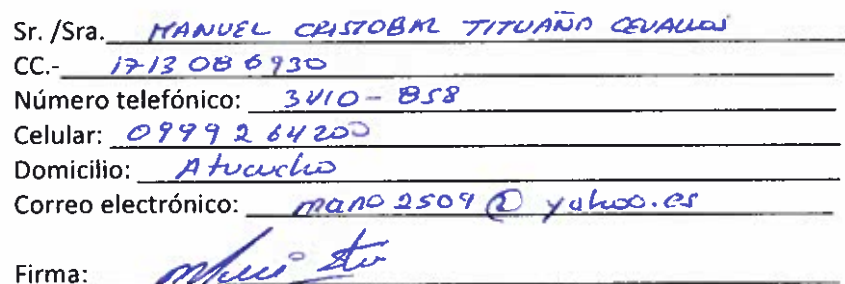 Sr. /Sra. MANUEL CRISTOBAL TITUAÑA CEVALLOS
CC.- 1713086930
Número telefónico: 3410-858
Celular: 0999264200
Domicilio: Atucucho
Correo electrónico: mano2509@yahoo.es
Firma: